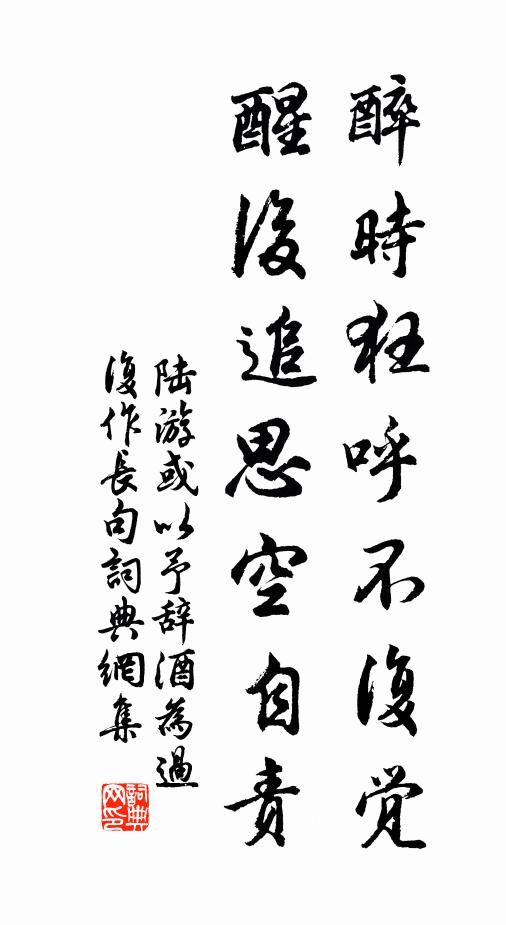 醉時狂呼不復覚
醒後追思空自責
陆游或以予辞酒為過
復作長句詞典網集
詞典
网印